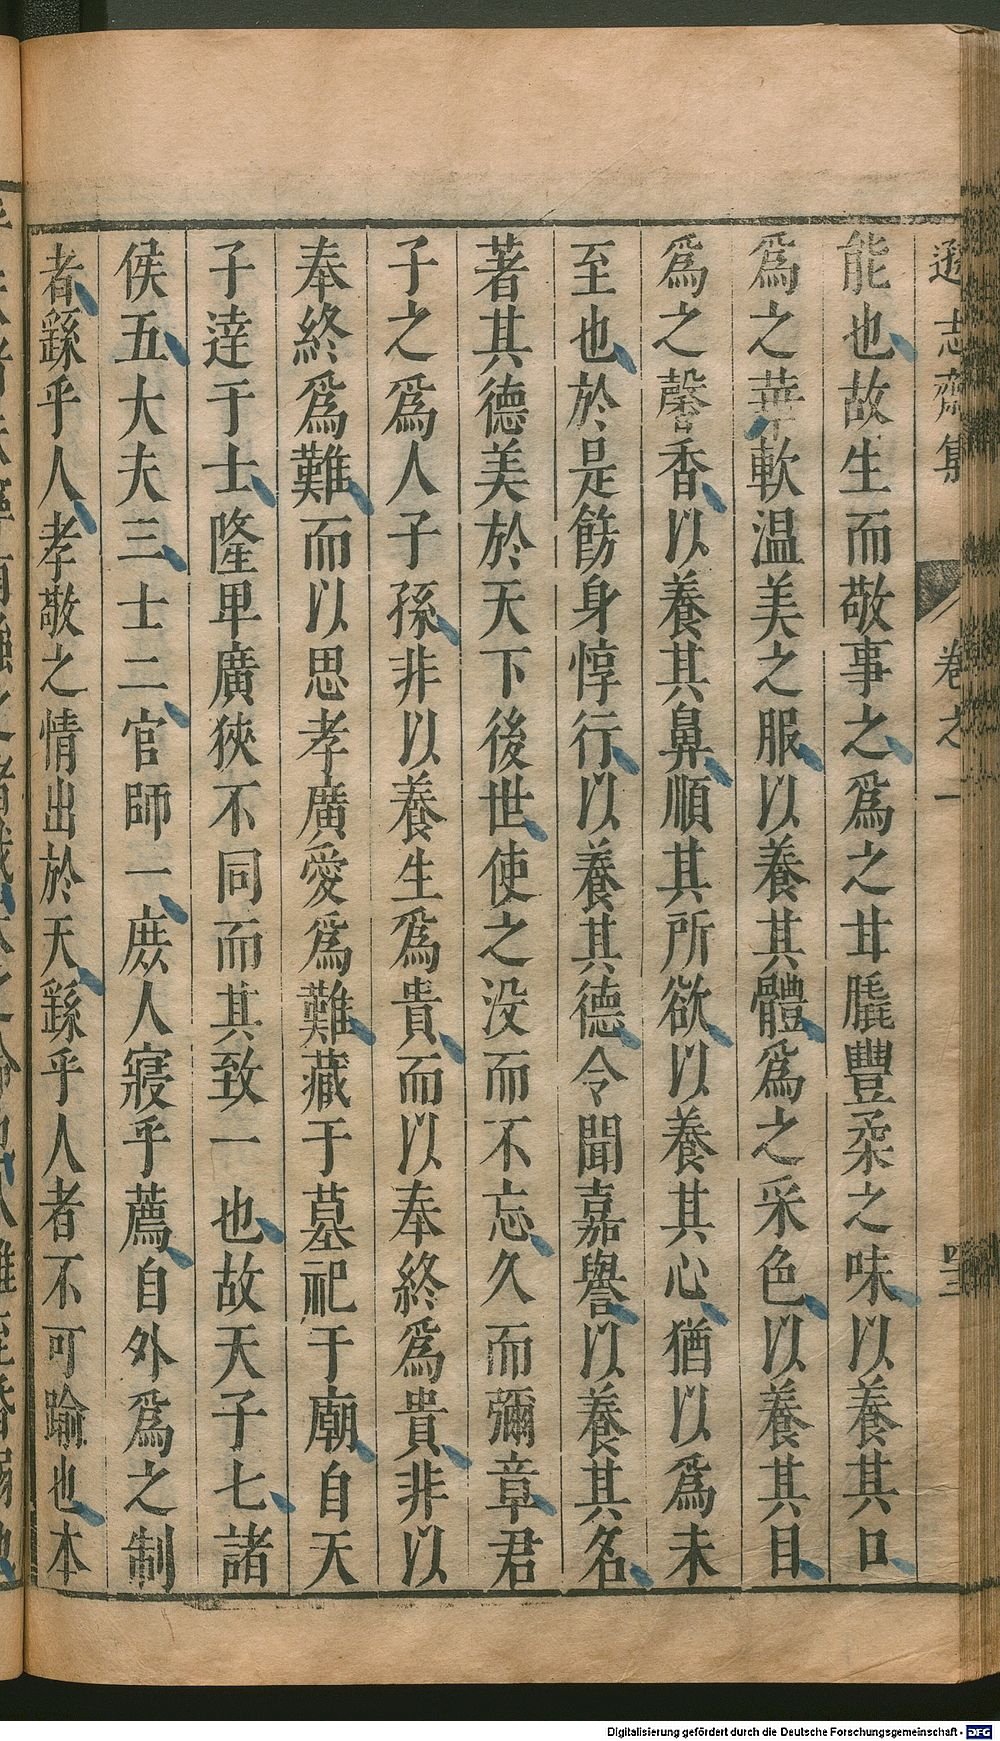 遜志齋集 卷之一
能也故生而敬事之爲之甘脆豐柔之味以養其口
爲之華軟温美之服以養其體爲之采色以養其目
爲之馨香以養其鼻順其所欲以養其心猶以爲未
至也於是飭身惇行以養其德令聞嘉譽以養其名
著其德美於天下後世使之没而不忘久而彌章君
子之爲人子孫非以養生爲貴而以奉終爲貴非以
奉終爲難而以思孝廣愛爲難藏于墓祀于廟自天
子逹于士隆卑廣狹不同而其致一也故天子七諸
侯五大夫三士二官師一庻人寢乎薦自外爲之制
者繇乎人孝敬之情出於天繇乎人者不可踰也本
Digitalisierung gefördert durch die Deutsche Forschungsgemeinschaft - DFG